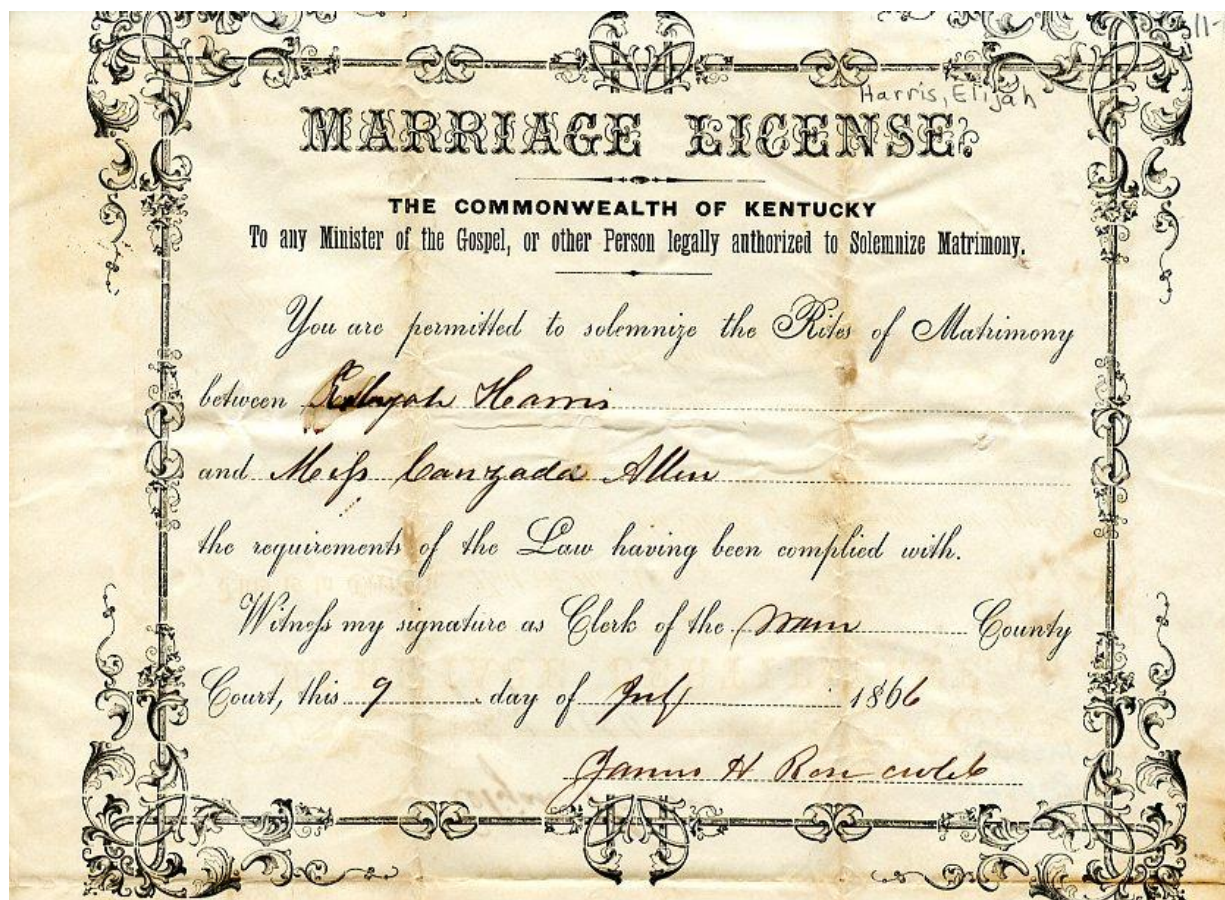 11-
Harris, Elijah
MARRIAGE LICENSE.
THE COMMONWEALTH OF KENTUCKY
To any Minister of the Gospel, or other Person legally authorized to Solemnize Matrimony.
You are permitted to solemnize the Rites of Matrimony
between Elijah Harris
and Miss Canzada Allen
the requirements of the Law having been complied with.
Witness my signature as Clerk of the County
Court, this 9 day of July 1866
James H Rose